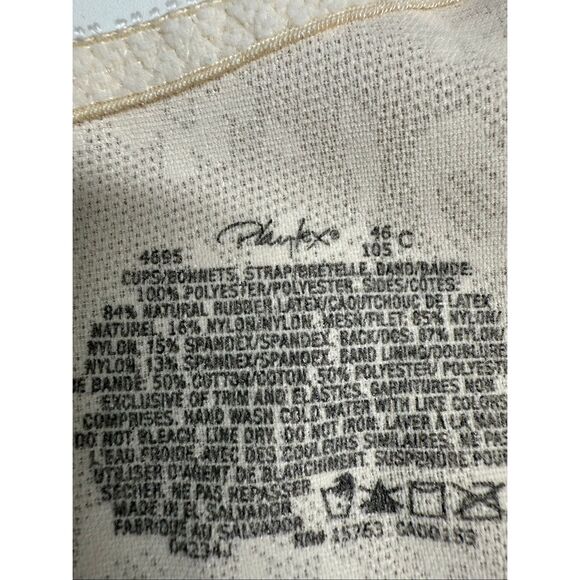 Playtex®
4695 46 C
105
CUPS/BONNETS, STRAP/BRETELLE, BAND/BANDE:
100% POLYESTER/POLYESTER. SIDES/CÔTES:
84% NATURAL RUBBER LATEX/CAOUTCHOUC DE LATEX
NATUREL, 16% NYLON/NYLON. MESH/FILET: 85% NYLON/
NYLON, 15% SPANDEX/SPANDEX. BACK/DOS: 87% NYLON/
NYLON, 13% SPANDEX/SPANDEX. BAND LINING/DOUBLURE
DE BANDE: 50% COTTON/COTON, 50% POLYESTER/POLYEST
EXCLUSIVE OF TRIM AND ELASTICS. GARNITURES NON
COMPRISES. HAND WASH COLD WATER WITH LIKE COLORS
DO NOT BLEACH. LINE DRY. DO NOT IRON. LAVER À LA MA
L'EAU FROIDE, AVEC DES COULEURS SIMILAIRES, NE PAS
UTILISER D'AGENT DE BLANCHIMENT. SUSPENDRE POUR
SÉCHER. NE PAS REPASSER
MADE IN EL SALVADOR
FABRIQUÉ AU SALVADOR
04234J RN# 15763 CA00153